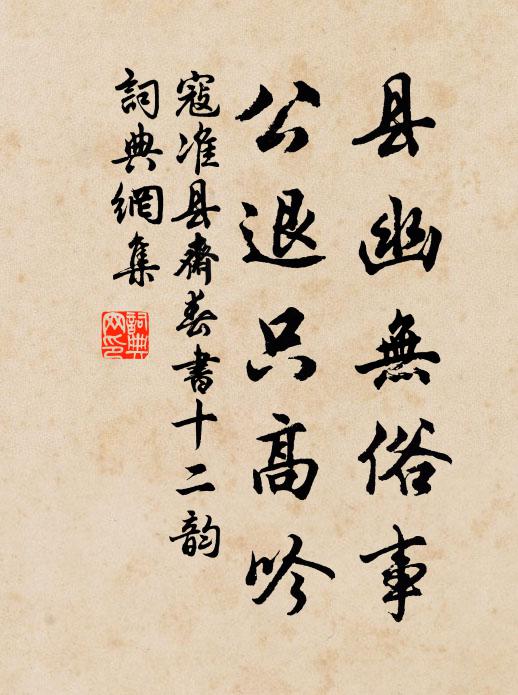 县幽無俗事
公退只高吟
寇准县斋春書十二韵
詞典網集
詞典網印